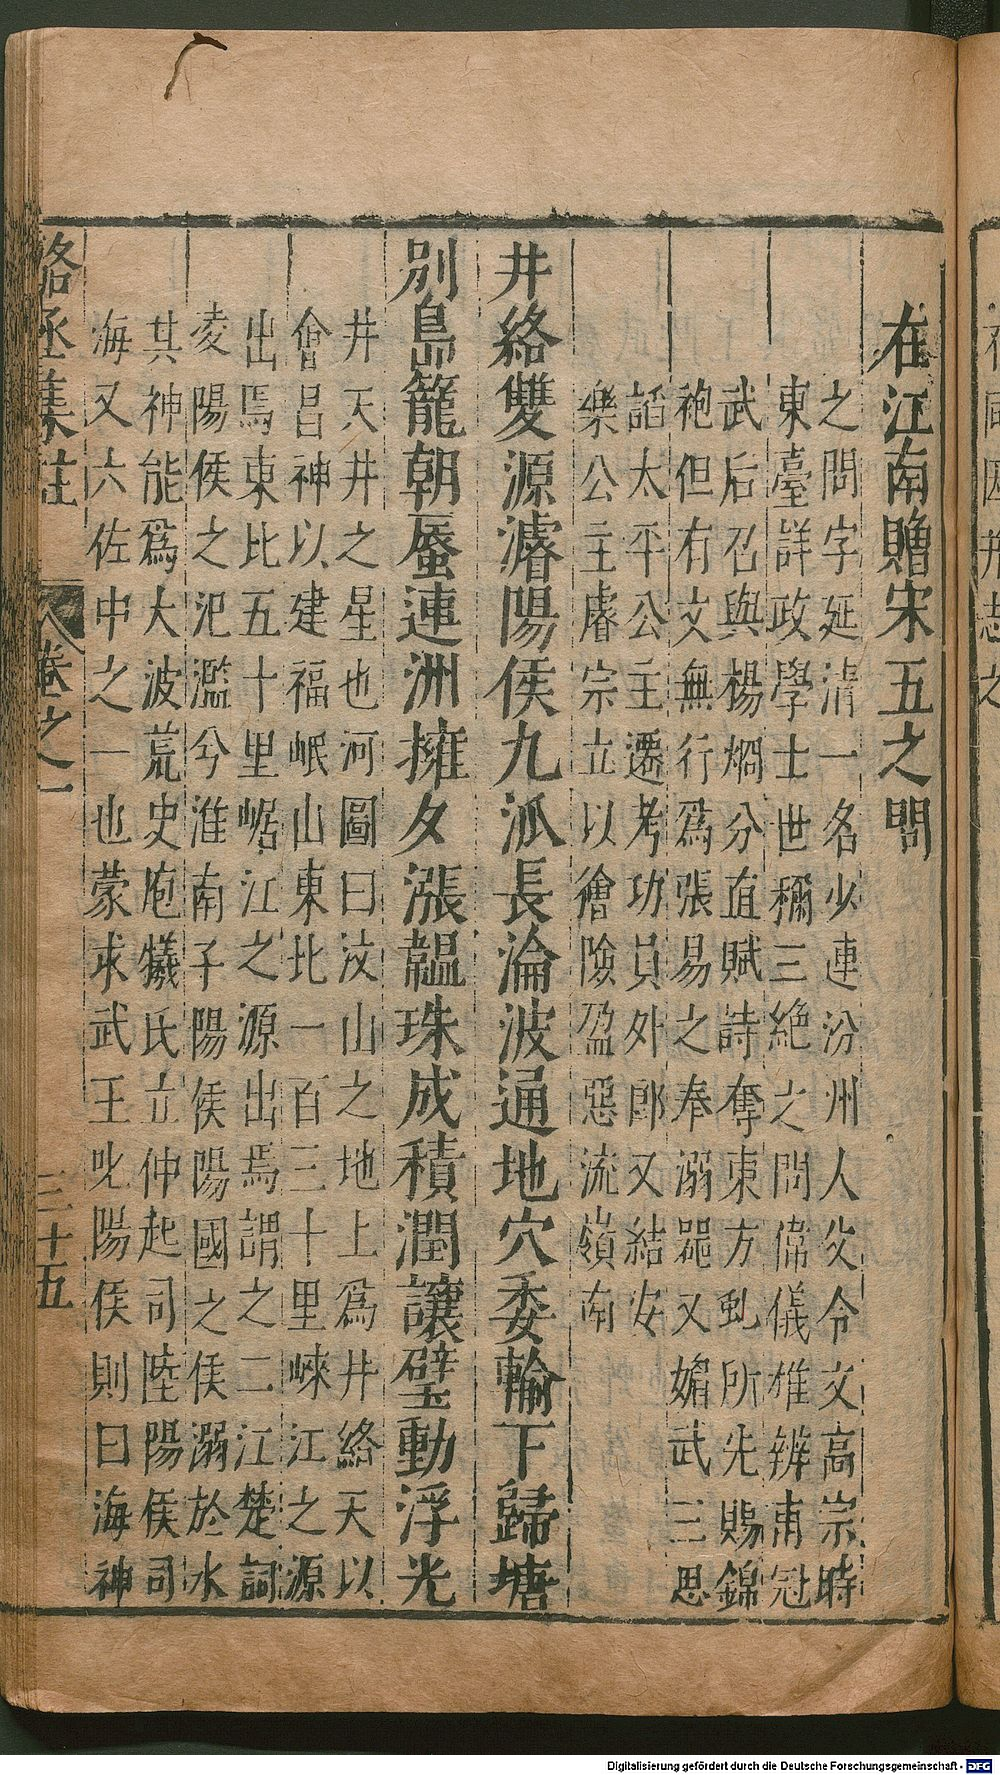 在江南贈宋五之問
之問字延清一名少連汾州人父令文高宗時
東臺詳政學士世稱三絕之問偉儀雄辨甫冠
武后召與楊烱分直賦詩奪東方虬所先賜錦
袍但有文無行為張易之奉溺器又媚武三思
諂太平公主遷考功員外郎又結安
樂公主睿宗立以獪險盈惡流嶺南
井絡雙源濬陽侯九派長淪波通地穴委輸下歸塘
別島籠朝蜃連洲擁夕漲韞珠成積潤讓璧動浮光
井天井之星也河圖曰汶山之地上為井絡天以
會昌神以建福岷山東北一百三十里崍江之源
出焉東北五十里崌江之源出焉謂之二江楚詞
凌陽侯之汜濫兮淮南子陽侯陽國之侯溺於水
其神能爲大波荒史庖犧氏立仲起司陸陽侯司
海又六佐中之一也蒙求武王叱陽侯則曰海神
駱丞集註 卷之一 三十五
Digitalisierung gefördert durch die Deutsche Forschungsgemeinschaft - DFG